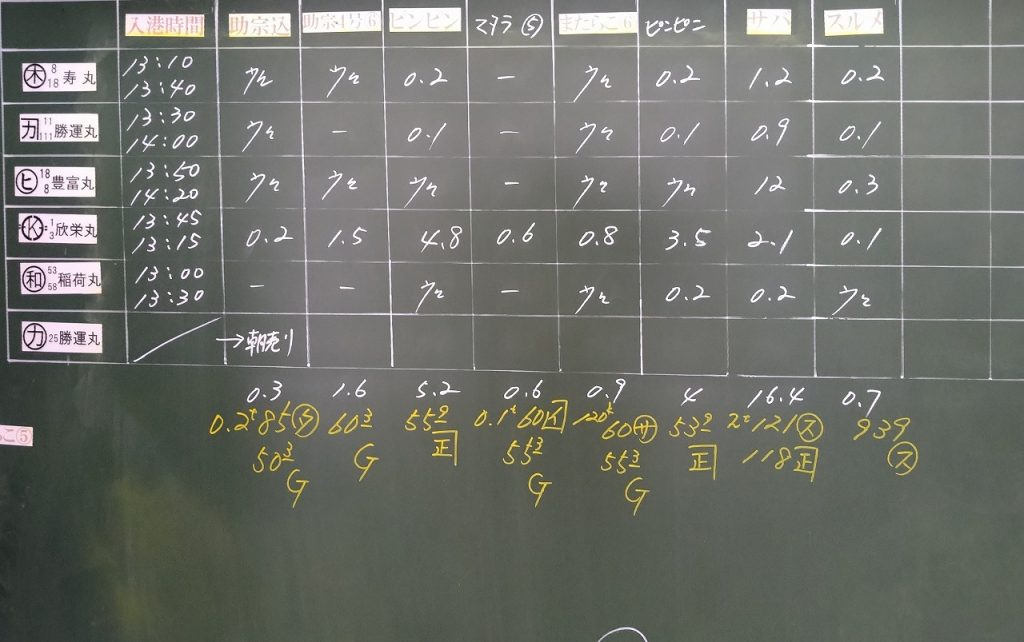 入港時間 助宗込 助宗4号6 ピンピン マダラ⑤ またらこ6 ピンピン サバ スルメ
㊍ 8 18 寿丸 13:10 13:40 ウス ウス 0.2 — ウス 0.2 1.2 0.2
カ 11 111 勝運丸 13:30 14:00 ウス — 0.1 — ウス 0.1 0.9 0.1
ヒ 18 8 豊富丸 13:50 14:20 ウス ウス ウス — ウス ウス 12 0.3
K 1 3 欣栄丸 13:45 13:15 0.2 1.5 4.8 0.6 0.8 3.5 2.1 0.1
和 53 58 稲荷丸 13:00 13:30 — — ウス — ウス 0.2 0.2 ウス
カ 25 勝運丸 →朝売り
0.3 1.6 5.2 0.6 0.9 4 16.4 0.7
こ⑤ 0.2t 85 60 55 0.1t 60 120 60 53 2t 121 ㋜ 939
50 G 正 55 55 正 118 正 ㋜
G G G